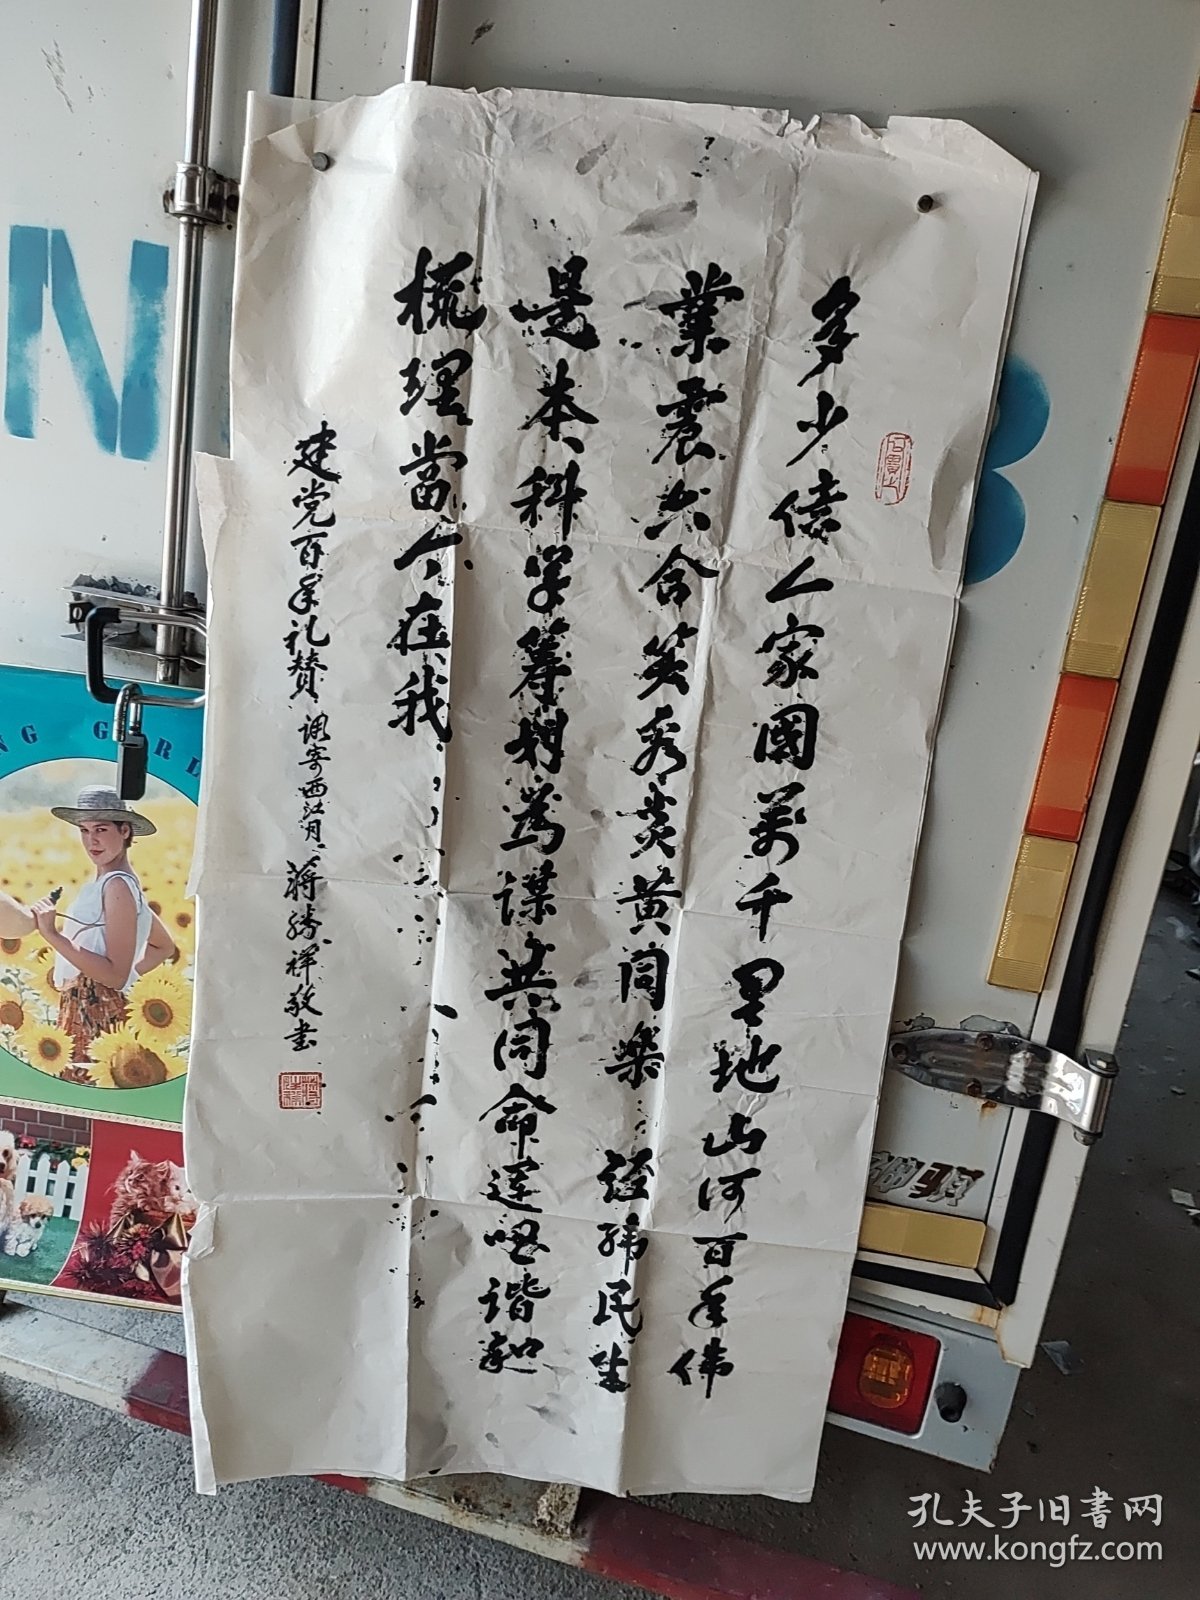 多少億人家國萬千里地山河百年伟
業震六合笑看炎黄同樂 经纬民生
是本科学筹划為谋共同命運唱谐和
梳理當今在我
建党百年礼赞 调寄西江月 蒋勝祥敬书
N
B
NG GIRL
孔夫子旧书网
www.kongfz.com